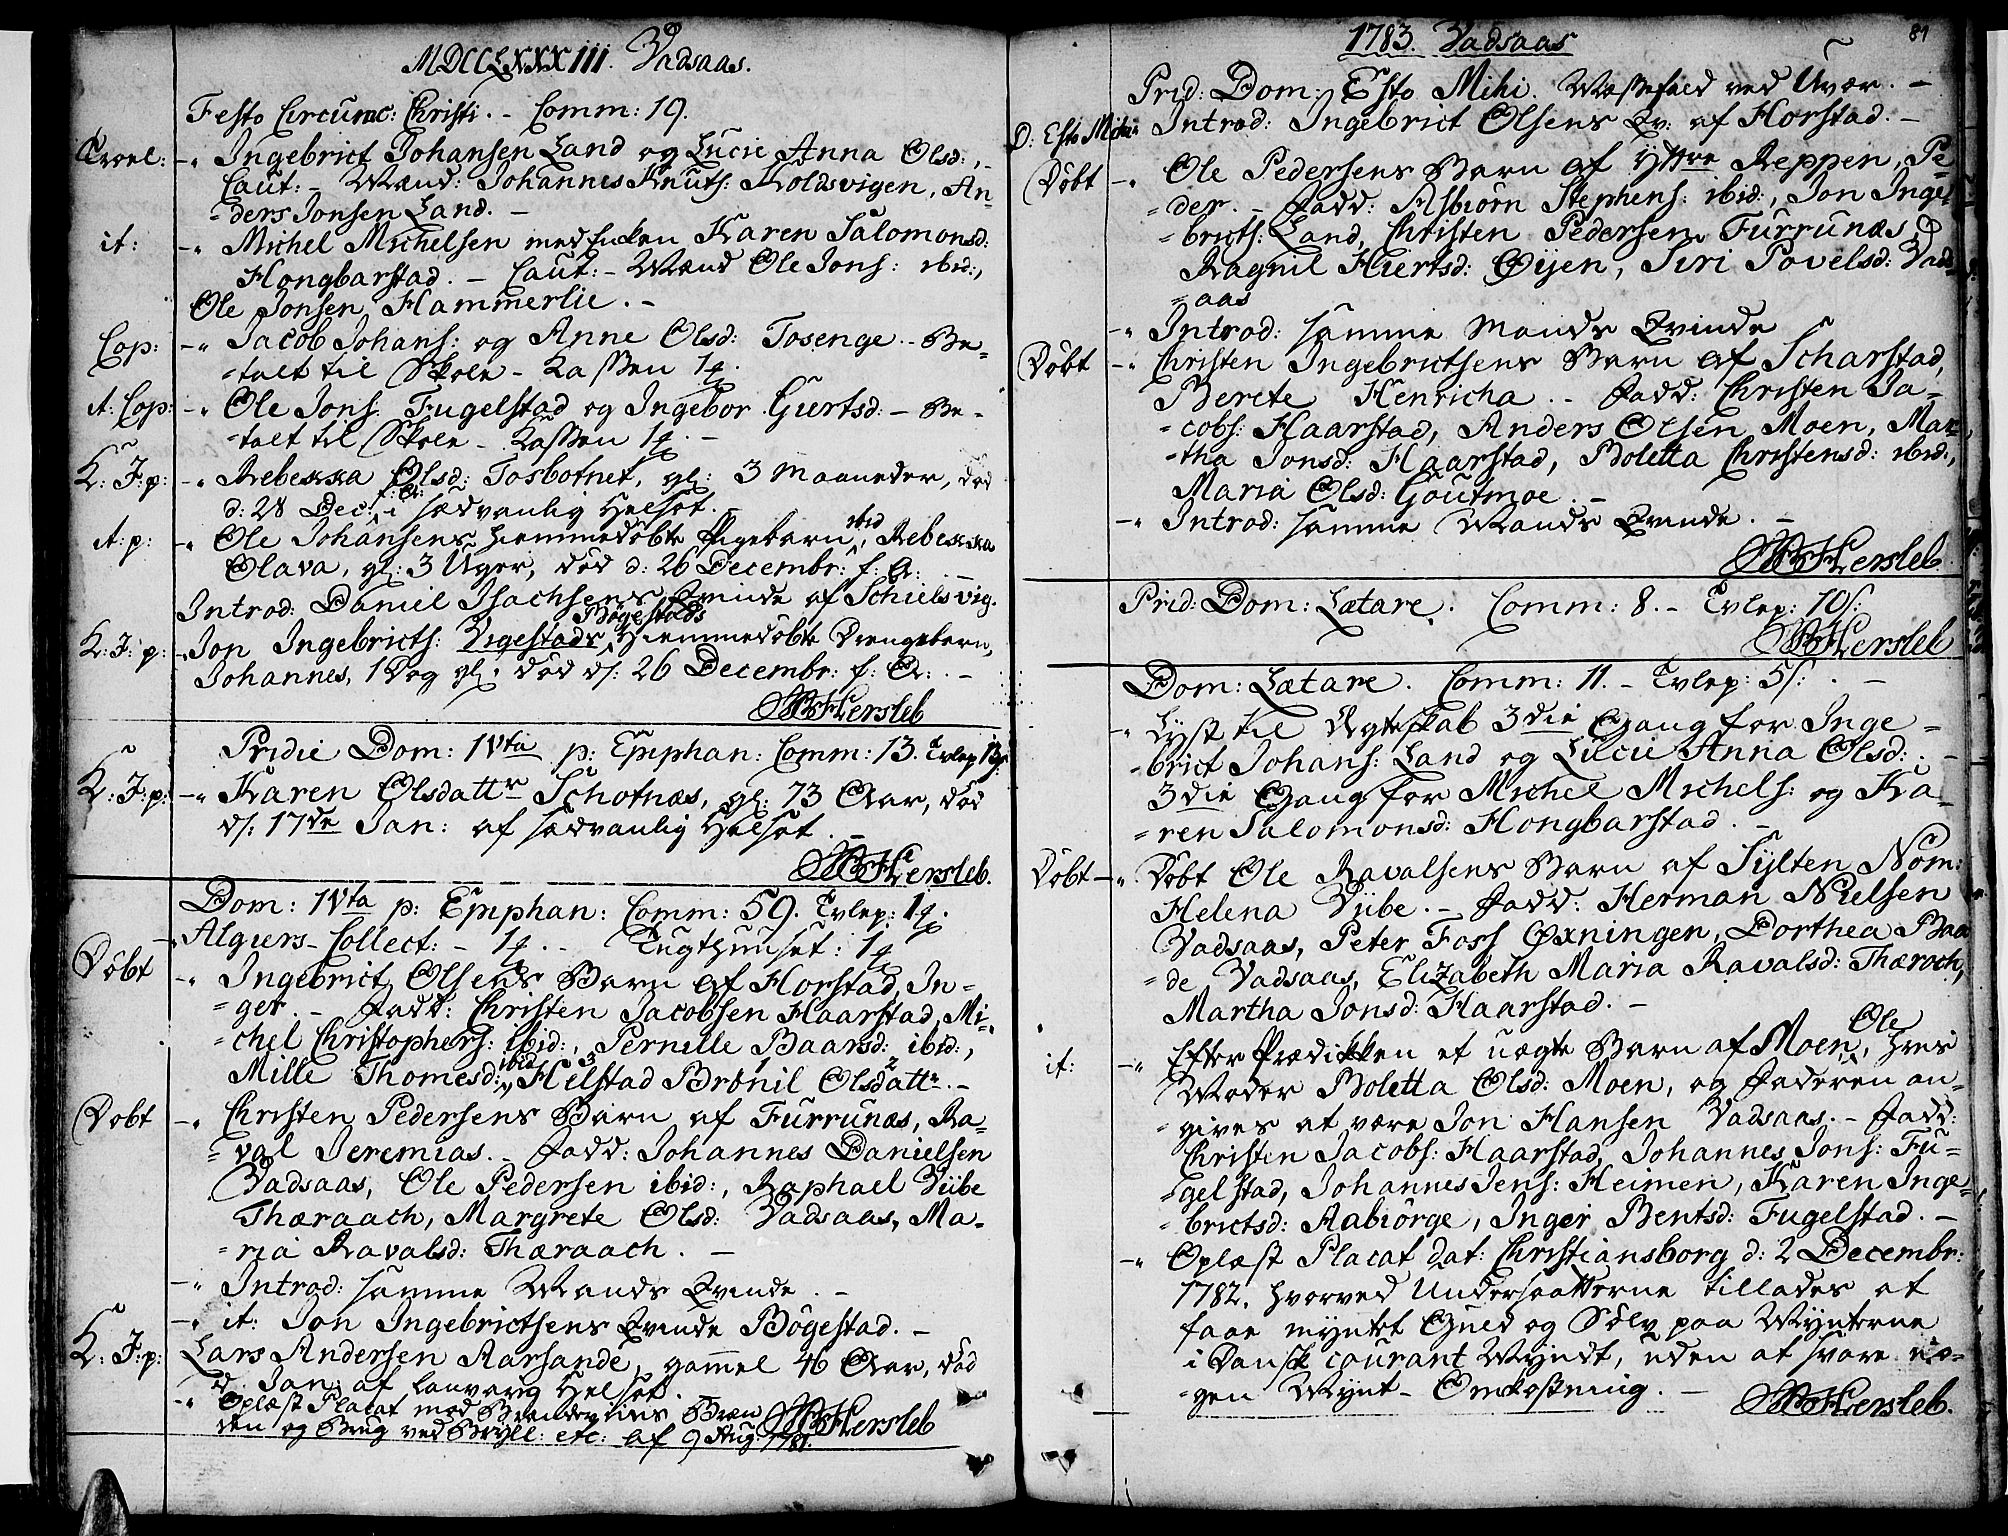 MDCCLXXXIII. Vadsaas.
Festo Circumc: Christi. - Comm: 19.
Trol: -" Ingebrict Johansen Land og Lucie Anna Olsd:,
Caut: - Mænd: Johannes Knuts: Koldsvigen, An-
-ders Jonsen Land. -
it: -" Michel Michelsen med Enken Karen Salomonsd:
Hongbarstad. - Caut: - Mænd Ole Jons: ibid:,
Ole Jonsen Hammerlie. -
Cop: -" Jacob Johans: og Anne Olsd: Tosenge - Be-
-talt til Skole-Kassen
it: Cop: -" Ole Jons: Fugelstad og Ingebor Giertsd: - Be-
-talt til Skole-Kassen
K: J: p: -" Rebekka Olsd: Tosbotnet, gl: 3 Maaneder, død
d: 28 Dec: f: A: i sædvanlig Helsot. -
it: p: -" Ole Johansens hiemmedøbte Pigebarn ibid, Rebekka
Olava, gl: 3 Uger, død d: 26 Decembr: f: A: -
Introd: Daniel Isachsens Qvinde af Schielsvig.
Bögestads
K: J: p: -" Jon Ingebricts: Vigestads, hiemmedøbte Drengebarn,
Johannes, 1 Dag gl: død d: 26 Decembr: f: A: -
Hersleb
Pridie Dom: IVta p: Epiphan: Comm: 13. Tvlep:
K: J: p: -" Karen Olsdattr Schotnæs, gl: 73 Aar, død
d: 17de Jan: af sædvanlig Helsot. -
Hersleb.
Dom: IVta p: Epiphan: Comm: 59. Tvlep:
-" Algiers-Collect: - Tugthuuset:
Döbt -" Ingebrict Olsens Barn af Horstad, In-
-ger. - Fadd: Christen Jacobsen Haarstad, Mi-
-chel Christophers: ibid:, Pernille Baarsd: ibid:,
Mille Thomesd: ibid, Helstad Brönil Olsdattr. -
Döbt -" Christen Pedersens Barn af Furrunæs, Ra-
-val Jeremias. - Fadd: Johannes Danielsen
Vadsaas, Ole Pedersen ibid:, Raphael Viibe
Thæraach, Margrete Olsd: Vadsaas, Ma-
-ria Ravalsd: Thæraach. -
-" Introd: samme Mands Qvinde. -
-" it: Jon Ingebrictsens Qvinde Bögestad. -
K: J: p: Lars Andersen Aarsande, gammel 46 Aar, død
d: Jan: af Helsot.
-" Oplæst Placat mod Brændeviins Bræn-
den og Brug ved Bryll: etc: af 9 Aug: 1781.
Hersleb
1783. Vadsaas
81
Prid: Dom: Esto Mihi. Messefald ved Uvær. -
D: Esto Mihi -" Introd: Ingebrict Olsens Qv: af Horstad. -
Döbt -" Ole Pedersens Barn af Yttre Reppen, Pe-
-der. - Fadd: Asbiörn Stephens: ibid:, Jon Inge-
-bricts: Land, Christen Pedersen Furrunæs,
Ragnil Hiertsd: Öijen, Siri Povelsd: Vads-
-aas
-" Introd: samme Mands Qvinde
Döbt -" Christen Ingebrictsens Barn af Scharstad,
Berete Henricha. - Fadd: Christen Ja-
-cobs: Haarstad, Anders Olsen Moen, Mar-
-tha Jonsd: Haarstad, Boletta Christensd: ibid:,
Maria Olsd: Goutmoe. -
-" Introd: samme Mands Qvinde. -
Hersleb.
Prid: Dom: Lætare. Comm: 8. - Tvlep: 10ſ:
Hersleb
Dom: Lætare. Comm: 11. - Tvlep: 5ſ: -
-" Lyst til Ægteskab 3die Gang for Inge-
-brict Johans: Land og Lucie Anna Olsd: -
3die Gang for Michel Michels: og Ka-
-ren Salomonsd: Hongbarstad. -
Döbt -" Döbt Ole Ravalsens Barn af Sylten Nom:
Helena Viibe. - Fadd: Herman Nielsen
Vadsaas, Peter Foss Öxningen, Dorthea Baa-
-de Vadsaas, Elizabeth Maria Ravalsd: Thæroch,
Martha Jonsd: Haarstad. -
it: -" Efter Prædikken et uægte Barn af Moen, Ole, hvis
Moder Boletta Olsd: Moen, og Faderen an-
-gives at være Jon Hansen Vadsaas. - Fadd:
Christen Jacobs: Haarstad, Johannes Jons: Fu-
-gelstad, Johannes Jens: Heimen, Karen Inge-
-brictsd: Aabiörge, Inger Bentsd: Fugelstad. -
-" Oplæst Placat dat: Christiansborg d: 2 Decembr:
1782. hvorved Undersaatterne tillades at
faae myntet Guld og Sölv paa Mynterne
i Dansk courant Myndt, uden at svare no-
-gen Mynt-Omkostning. -
Hersleb.